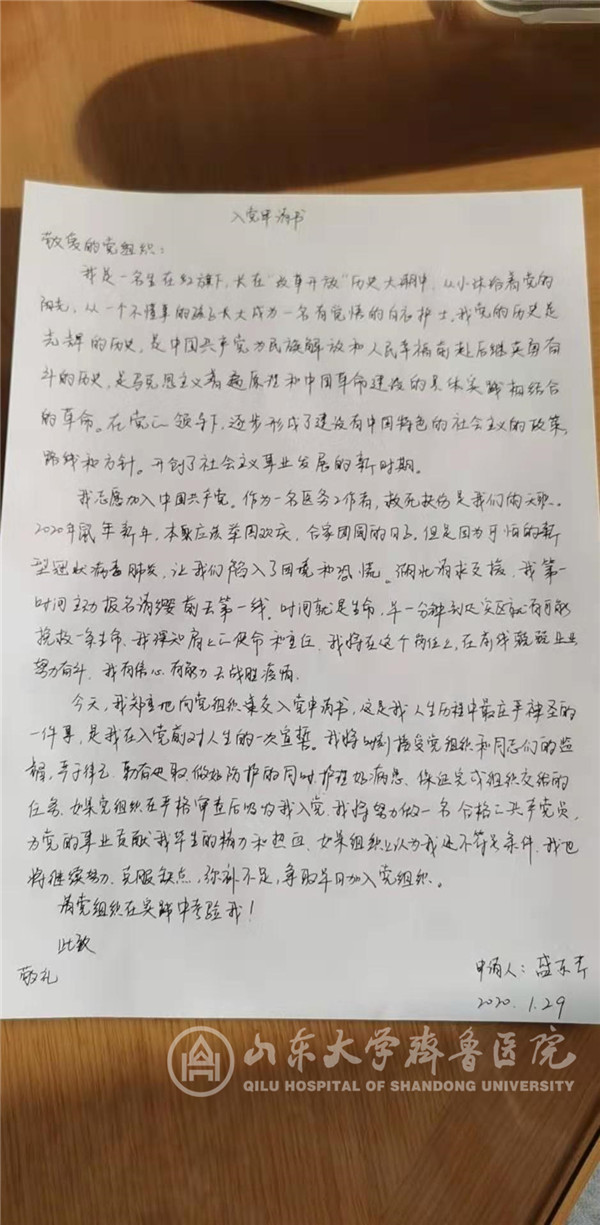 入党申请书
敬爱的党组织：
我是一名生在红旗下，长在“改革开放”历史大潮中，从小沐浴着党的
阳光，从一个不懂事的孩子长大成为一名有觉悟的白衣护士。我党的历史是
光辉的历史，是中国共产党为民族解放和人民幸福前赴后继英勇奋
斗的历史，是马克思主义普遍原理和中国革命建设的具体实践相结合
的革命。在党的领导下，逐步形成了建设有中国特色的社会主义的政策、
路线和方针。开创了社会主义事业发展的新时期。
我志愿加入中国共产党。作为一名医务工作者，救死扶伤是我们的天职。
2020年鼠年新年，本来应该举国欢庆，合家团圆的日子。但是因为可怕的新
型冠状病毒肺炎，让我们陷入了困境和恐慌。湖北请求支援，我第一
时间主动报名请缨前去第一线。时间就是生命，早一分钟到达灾区就有可能
挽救一条生命。我深知肩上的使命和责任。我将在这个岗位上，在前线兢兢业业
努力奋斗，我有信心有能力去战胜疫情。
今天，我郑重地向党组织递交入党申请书，这是我人生历程中最庄严神圣的
一件事，是我在入党前对人生的一次宣誓。我将时刻接受党组织和同志们的监
督，严于律己、勤奋进取，做好防护的同时，护理好病患、保证完成组织交给的
任务。如果党组织在严格审查后吸收我入党，我将努力做一名合格的共产党员，
为党的事业贡献我毕生的精力和热血、如果组织上认为我还不符合条件，我也
将继续努力、克服缺点，弥补不足，争取早日加入党组织。
请党组织在实践中考验我！
此致
敬礼
申请人：盛东芹
2020.1.29
山东大学齐鲁医院
QILU HOSPITAL OF SHANDONG UNIVERSITY